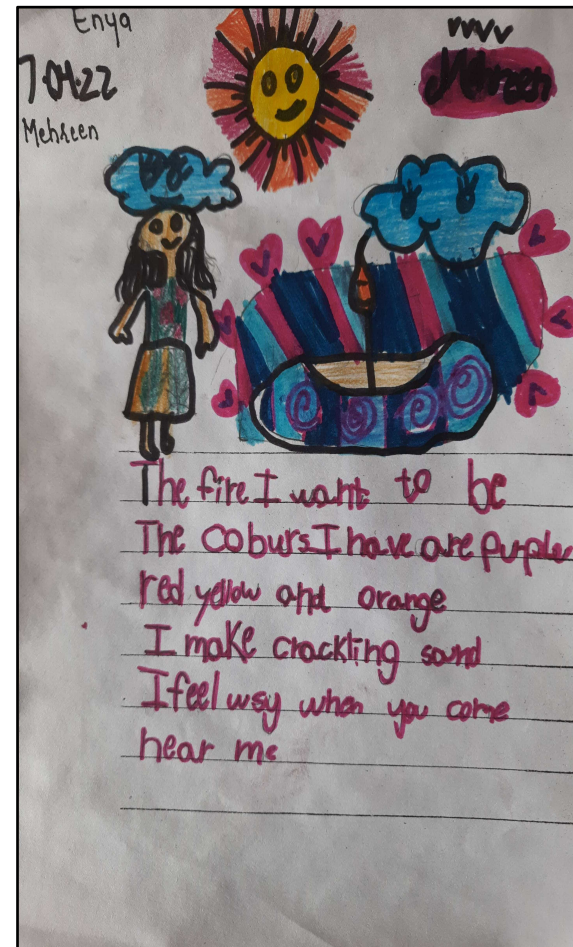 Enya
7.04.22
Mehreen
Mehreen
The fire I want to be
The colours I have are purple
red yellow and orange
I make crackling sound
I feel wsy when you come
near me